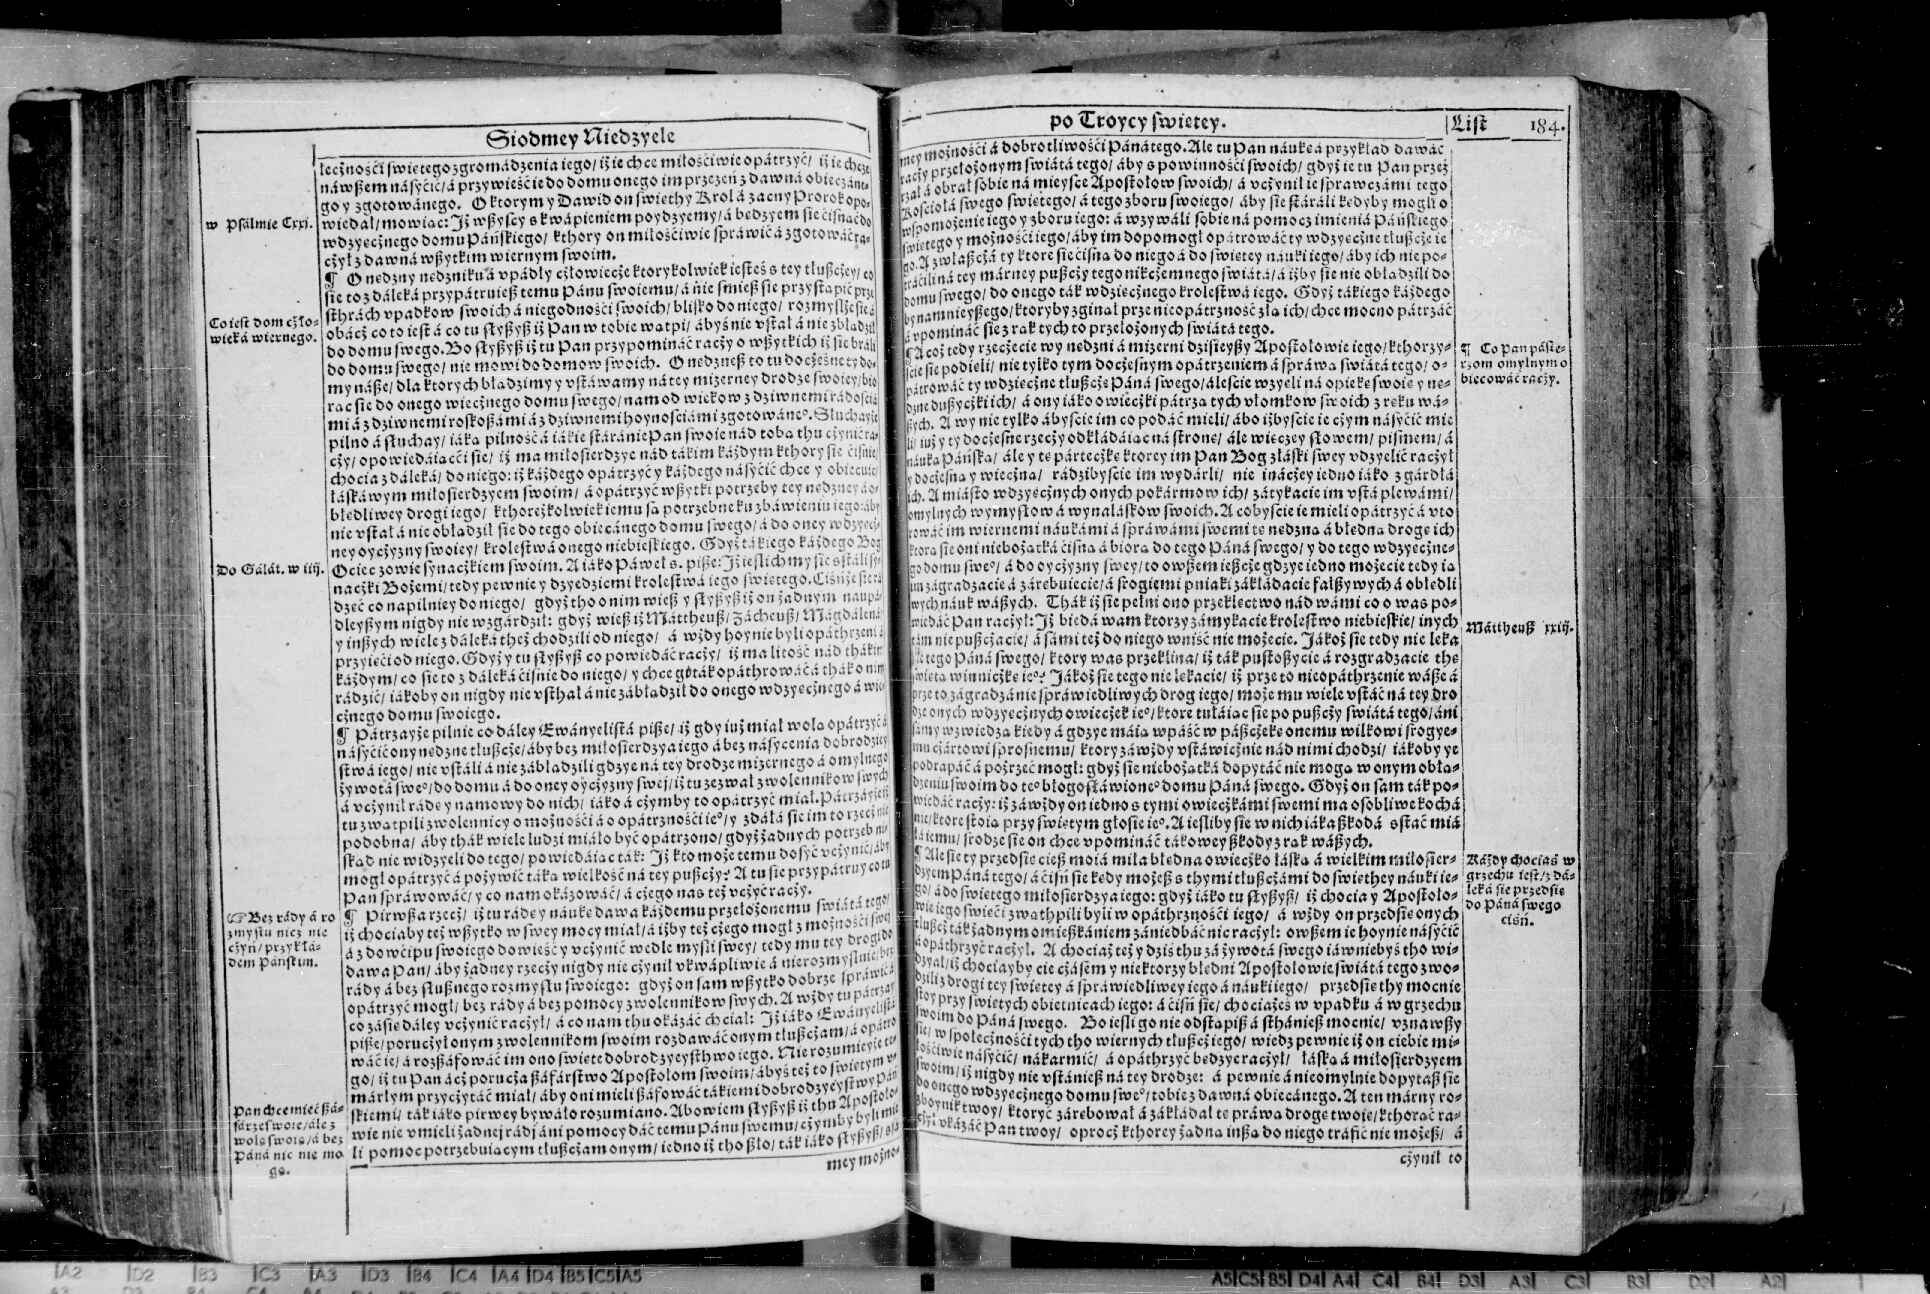 Siodmey Niedzyele
lecżnośći świętego zgromádzenia iego/ iż ie chce miłośćiwie opátrzyć/ iż ie chcze
ná wßem násyćić/ á przywieść ie do domu onego im przezeń z dawná obiecáne-
go y zgotowánego. O ktorym y Dawid on święthy Krol á zacny Prorok opo-
wiedał/ mowiąc: Iż wßyscy s kwápieniem poydzyemy/ á będzyem sie ćisnąć do
wdzyęcżnego domu Páńskiego/ kthory on miłośćiwie spráwić á zgotowáć rá-
cżył z dawná wßytkim wiernym swoim.
¶ O nędzny nędzniku á vpádły cżłowiecże ktorykolwiek iesteś s tey tłußcżey/ co
sie to z dáleká przypátruieß temu Pánu swoiemu/ á nie śmieß sie przystąpić prze
sthrách vpadkow swoich á niegodnośći swoich/ blisko do niego/ rozmyślże sie á
obácż co to iest á co tu słyßyß iż Pan w tobie wątpi/ ábyś nie vstał á nie zbłądził
do domu swego. Bo słyßyß iż tu Pan przypomináć racży o wßytkich iż sie bráli
do domu swego/ nie mowi do domow swoich. O nędzneß to tu docżesne ty do-
my náße/ dla ktorych błądzimy y vstawamy ná tey mizerney drodze swoiey/ bio
rąc sie do onego wiecżnego domu swego/ nam od wiekow z dziwnemi rádośćiá
mi á z dziwnemi roskoßámi á z dziwnemi hoynościámi zgotowáneº. Słuchayże
pilno á słuchay/ iáką pilność á iákie stáránie Pan swoie nád tobą thu cżynić rá-
cży/ opowiedáiącći sie/ iż ma miłosierdzye nád tákim káżdym kthory sie ćiśnie/
chocia z dáleká/ do niego: iż káżdego opátrzyć y káżdego násyćić chce y obiecuie
łáskáwym miłosierdzyem swoim/ á opátrzyć wßytki potrzeby tey nędzney á o-
błędliwey drogi iego/ kthoreżkolwiek iemu są potrzebne ku zbáwieniu iego: áby
nie vstał á nie obłądził sie do tego obiecánego domu swego/ á do oney wdzyęcż-
ney oycżyzny swoiey/ krolestwá onego niebieskiego. Gdyż tákiego káżdego Bog
Oćiec zowie synacżkiem swoim. A iáko Páweł s. piße: Iż ieslich my sie sstáli sy-
nacżki Bożemi/ tedy pewnie y dzyedźicmi krolestwá iego świętego. Ciśniże sie rá
dzęć co napilniey do niego/ gdyż tho o nim wieß y słyßyß iż on żadnym naupá
dleyßym nigdy nie wzgárdził: gdyż wieß iż Mattheuß/ Zácheuß/ Mágdálená/
y inßych wiele z dáleká theż chodzili od niego/ á wżdy hoynie byli opáthrzeni á
przyięći od niego. Gdyż y tu słyßyß co powiedáć racży/ iż ma litość nád thákim
káżdym/ co sie to z dáleká ćiśnie do niego/ y chce go ták opáthrowáć á tháko nim
rádzić/ iákoby on nigdy nie vsthał á nie zábłądził do onego wdzyęcżnego á wie
cżnego domu swoiego.
¶ Pátrzayże pilnie co dáley Ewányelistá piße/ iż gdy iuż miał wolą opátrzyć á
násyćić ony nędzne tłußcże/ áby bez miłosierdzya iego á bez násycenia dobrodziey
stwá iego/ nie vstáli á nie zábłądzili gdzye ná tey drodze mizernego á omylnego
żywotá sweº/ do domu á do oney oycżyzny swej/ iż tu zezwał zwolennikow swych
á vcżynił rádę y námowy do nich/ iáko á cżymby to opátrzyć miał. Pátrzayżeß
tu zwątpili zwolennicy o możnośći á o opátrznośći ieº/ y zdáłá sie im to rzecż nie
podobna/ áby thák wiele ludzi miáło być opátrzono/ gdyż żadnych potrzeb ni
skąd nie widzyeli do tego/ powiedáiąc ták: Iż kto może temu dosyć vcżynić/ áby
mogł opátrzyć á pożywić táką wielkość ná tey pußcży? A tu sie przypátruy co tu
Pan spráwowáć/ y co nam okázowáć/ á cżego nas też vcżyć racży.
¶ Pirwßa rzecż/ iż tu rádę y náukę dawa káżdemu przełożonemu świátá tego/
iż chociaby też wßytko w swey mocy miał/ á iżby też cżego mogł z możnośći swej
á z dowćipu swoiego dowieść y vcżynić wedle myśli swey/ tedy mu tey drogi do
dawa Pan/ áby żadney rzecży nigdy nie cżynił vkwápliwie á nierozmyślnie/ bez
rády á bez słußnego rozmysłu swoiego: gdyż on sam wßytko dobrze spráwić á
opátrzyć mogł/ bez rády á bez pomocy zwolennikow swych. A wżdy tu pátrzay
co zásie dáley vcżynić racżył/ á co nam thu okázáć chciał: Iż iáko Ewányelistá
piße/ porucżył onym zwolennikom swoim rozdawáć onym tłußcżam/ á opátro
wáć ie/ á rozßáfowáć im ono święte dobrodzyeysthwo iego. Nie rozumieyże te-
go/ iż tu Pan ácż porucża ßáfárstwo Apostołom swoim/ ábyś też to świętym v-
márłym przycżytáć miał/ áby oni mieli ßáfowáć tákiemi dobrodzyeystwy Páń
skiemi/ ták iáko pirwey bywáło rozumiano. Abowiem słyßyß iż thu Apostoło-
wie nie vmieli żadnej rády áni pomocy dáć temu Pánu swemu/ cżymby byli mie
li pomoc potrzebuiącym tłußcżam onym/ iedno iż tho ßło/ ták iáko słyßyß/ s sá
mey możno-
w Psálmie Cxxj.
Co iest dom cżło-
wieká wiernego.
Do Gálát. w iiij.
☞ Bez rády á ro
zmysłu nicż nie
cżyń/ przykłá-
dem Páńskim.
Pan chce mieć ßá-
fárze swoie/ ále z
wolą swoią/ á bez
Páná nic nie mo
gą.
po Troycy świętey.
List 184.
mey możnośći á dobrotliwośći Páná tego. Ale tu Pan náukę á przykład dawáć
racży przełożonym świátá tego/ áby s powinnośći swoich/ gdyż ie tu Pan przeź
rzał á obrał sobie ná mieysce Apostołow swoich/ á vcżynił ie spráwcżámi tego
Kośćiołá swego świętego/ á tego zboru swoiego/ áby sie stáráli kędyby mogli o
wspomożenie iego y zboru iego: á wzywáli sobie ná pomocż imienia Páńskiego
świętego y możnośći iego/ áby im dopomogł opátrowáć ty wdzyęcżne tłußcże ie
go. A zwłaßcżá ty ktore sie ćisną do niego á do świętey náuki iego/ áby ich nie po-
tráćili ná tey márney pußcży tego nikcżemnego świátá/ á iżby sie nie obłądzili do
domu swego/ do onego ták wdzięcżnego krolestwá iego. Gdyż tákiego káżdego
by namnieyßego/ ktoryby zginął prze nieopátrzność złą ich/ chce mocno pátrzáć
á vpomináć sie z rąk tych to przełożonych świátá tego.
¶ A coż tedy rzecżecie wy nędzni á mizerni dzisieyßy Apostołowie iego/ kthorzy-
śćie sie podięli/ nie tylko tym docżesnym opátrzeniem á spráwą świátá tego/ o-
pátrowáć ty wdzięcżne tłußcże Páná swego/ áleście wzyęli ná opiekę swoię y nę-
dzne dußycżki ich/ á ony iáko owiecżki pátrzą tych vłomkow swoich z ręku wá-
ßych. A wy nie tylko ábyście im co podáć mieli/ ábo iżbyście ie cżym násyćić mie
li/ iuż y ty docżesne rzecży odkłádáiąc ná stronę/ ále więcey słowem/ pismem/ á
náuką Páńską/ ále y tę párteckę ktorey im Pan Bog z łáski swey vdzyelić racżył
y docżesną y wiecżną/ rádzibyście im wydárli/ nie inácżey iedno iáko z gárdłá
ich. A miásto wdzyęcżnych onych pokármow ich/ zátykacie im vstá plewámi/
omylnych wymysłow á wynálaskow swoich. A cobyście ie mieli opátrzyć á vto
rowáć im wiernemi náukámi á spráwámi swemi tę nędzną á błędną drogę ich
ktorą sie oni nieboźątká ćisną á biorą do tego Páná swego/ y do tego wdzyęcżne-
go domu sweº/ á do oycżyzny swey/ to owßem ießcże gdzye iedno możecie tedy ią
im zágradzacie á zárębuiecie/ á srogiemi pniaki zákłádácie fałßywych á obłędli
wych náuk wáßych. Thák iż sie pełni ono przeklęctwo nád wámi co o was po-
wiedáć Pan racżył: Iż biedá wam ktorzy zámykacie krolestwo niebieskie/ inych
tám nie pußcżácie/ á sámi też do niego wniść nie możecie. Iákoż sie tedy nie lęka
cie tego Páná swego/ ktory was przeklina/ iż ták pustoßycie á rozgradzacie thę
świętą winnicżkę ieº? Iákoż sie tego nie lękacie/ iż prze to nieopáthrzenie wáße á
prze to zágradzánie spráwiedliwych drog iego/ może mu wiele vstáć ná tey dro
dze onych wdzyęcżnych owiecżek ieº/ ktore tułáiąc sie po pußcży świátá tego/ áni
sámy wzwiedzą kiedy á gdzye máią wpáść w páßcżękę onemu wilkowi srogye-
mu cżártowi sprosnemu/ ktory záwżdy vstáwicżnie nád nimi chodzi/ iákoby ye
podrápáć á pożrzeć mogł: gdyż sie nieboźątká dopytáć nie mogą w onym obłą-
dzeniu swoim do teº błogosłáwioneº domu Páná swego. Gdyż on sam ták po-
wiedáć racży: iż záwżdy on iedno s tymi owiecżkámi swemi ma osobliwe kochá
nie/ ktore stoią przy świętym głosie ieº. A iesliby sie w nich iáka ßkodá sstáć miá
łá iemu/ srodze sie on chce vpomináć tákowey ßkody z rąk wáßych.
¶ Ale sie ty przedsię cieß moiá miła błędna owiecżko łáską á wielkim miłosier-
dzyem Páná tego/ á ćiśń sie kędy możeß s thymi tłußcżámi do święthey náuki ie-
go/ á do świętego miłosierdzya iego: gdyż iáko tu słyßyß/ iż chocia y Apostoło-
wie iego święći zwąthpili byli w opáthrznośći iego/ á wżdy on przedsię onych
tłußcż ták żadnym omießkániem zániedbáć nie racżył: owßem ie hoynie násyćić
á opáthrzyć racżył. A chociaż też y dziś thu zá żywotá swego iáwnie byś tho wi-
dzyał/ iż chociayby cie cżásem y niektorzy błędni Apostołowie świátá tego zwo-
dzili z drogi tey świętey á spráwiedliwey iego á náuki iego/ przedsię thy mocnie
stoy przy świętych obietnicach iego: á ćiśń sie/ chociażeś w vpadku á w grzechu
swoim do Páná swego. Bo iesli go nie odstąpiß á sthánieß mocnie/ vznawßy
sie/ w społecżnośći tych tho wiernych tłußcż iego/ wiedz pewnie iż on ciebie mi-
łośćiwie násyćić/ nákármić/ á opáthrzyć będzye racżył/ łáską á miłosierdzyem
swoim/ iż nigdy nie vstánieß ná tey drodze: á pewnie á nieomylnie dopytaß sie
do onego wdzyęcżnego domu sweº/ tobie z dawná obiecánego. A ten márny ro-
zboynik twoy/ ktoryć zárębował á zákładał tę práwą drogę twoię/ kthorąć rá-
cżył vkázáć Pan twoy/ oprocż kthorey żadna inßa do niego tráfić nie możeß/ á
cżynił to
¶ Co Pan páste-
rzom omylnym o
biecowáć racży.
Máttheuß xxiij.
Káżdy chociaś w
grzechu iest/ z dá-
leká sie przedsię
do Páná swego
ćiśń.